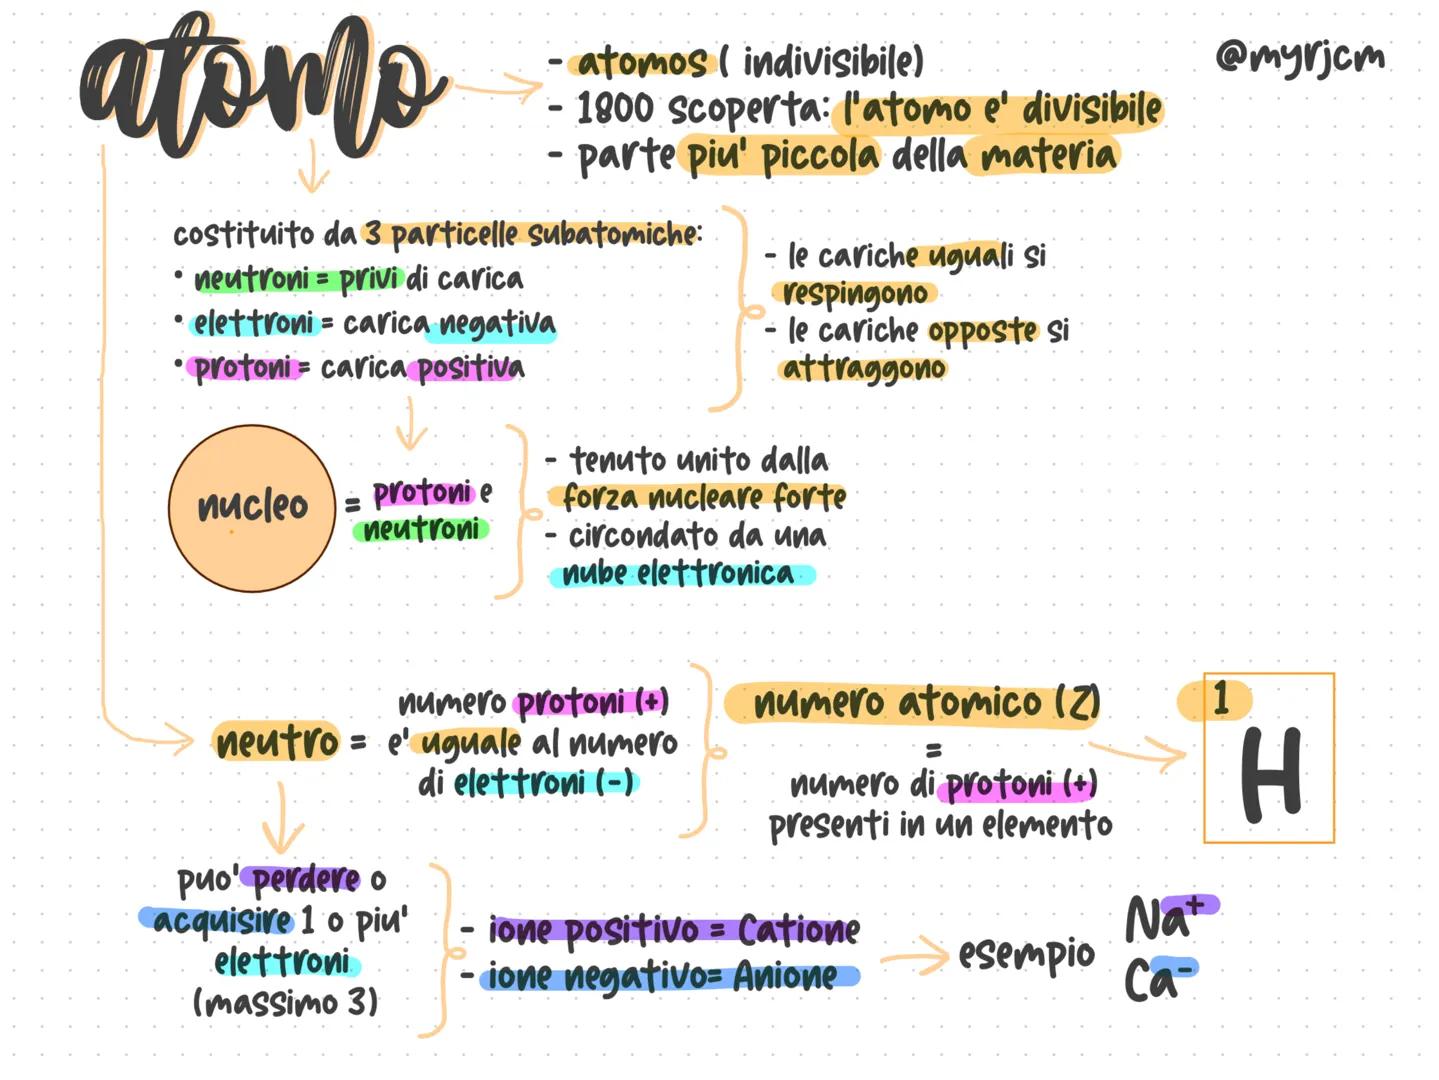 atomo
- atomos ( indivisibile)
- 1800 scoperta: l'atomo e' divisibile
- parte piu' piccola della materia
@myrjcm
costituito da 3 particelle subatomiche:
• neutroni = privi di carica
• elettroni = carica negativa
• protoni = carica positiva
- le cariche uguali si
respingono
- le cariche opposte si
attraggono
nucleo
= protoni e
neutroni
- tenuto unito dalla
forza nucleare forte
- circondato da una
nube elettronica
neutro =
numero protoni (+)
e' uguale al numero
di elettroni (-)
numero atomico (Z)
=
numero di protoni (+)
presenti in un elemento
1
H
puo' perdere o
acquisire 1 o piu'
elettroni
(massimo 3)
- ione positivo = Catione
- ione negativo= Anione
esempio
Na+
Ca-